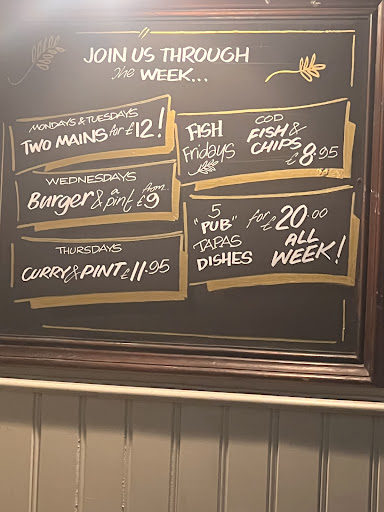 JOIN US THROUGH
the WEEK...
MONDAYS & TUESDAYS
TWO MAINS for £12!
WEDNESDAYS
Burger & a pint from £9
THURSDAYS
CURRY & PINT £11.95
FISH
Fridays
COD
FISH &
CHIPS
£8.95
5
"PUB"
TAPAS
DISHES
for £20.00
ALL
WEEK!